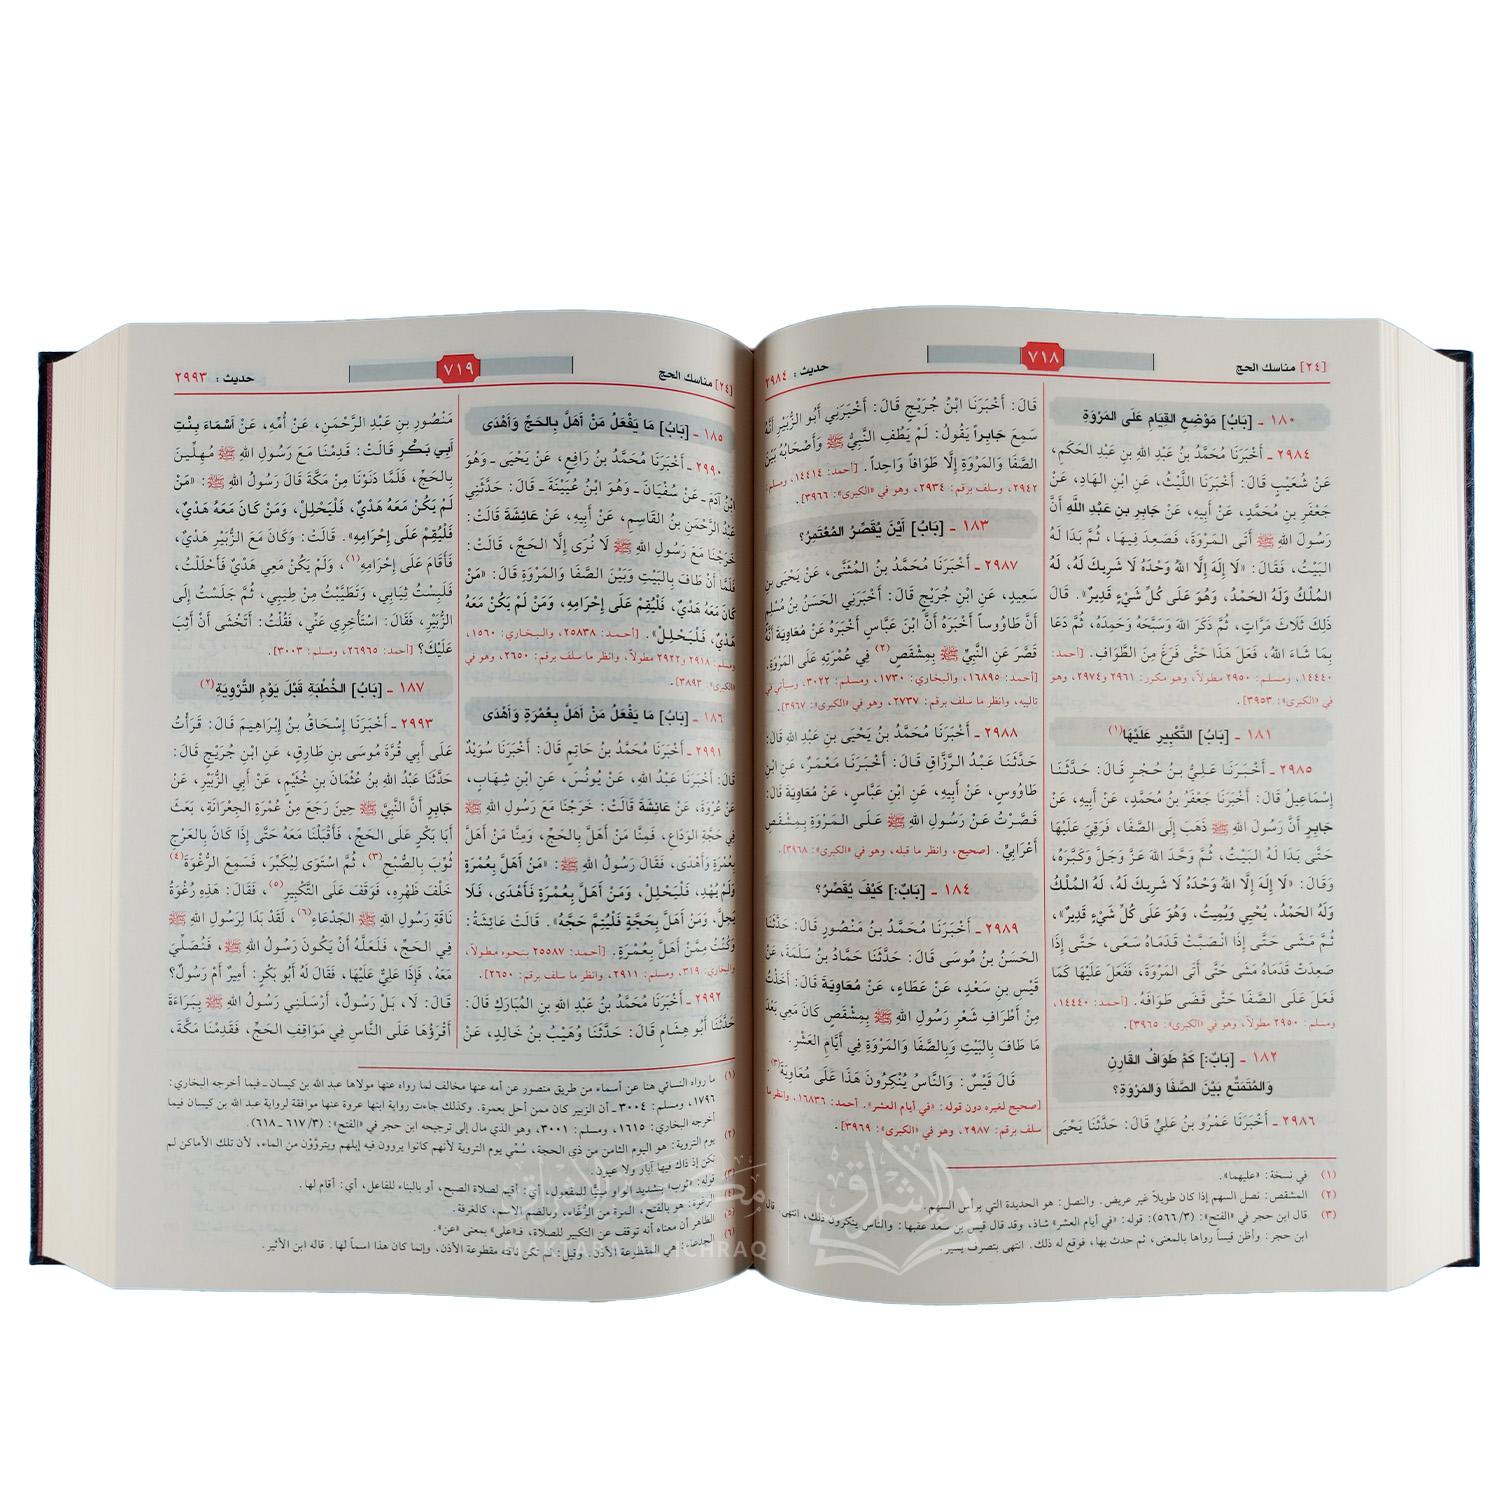 [٢٤] مناسك الحج
٧١٨
حديث : ٢٩٨٤
١٨٠ ـ [بَابُ] مَوْضِعِ القِيَامِ عَلَى المَرْوَةِ
٢٩٨٤ ـ أَخْبَرَنَا مُحَمَّدُ بنُ عَبْدِ اللهِ بنِ عَبْدِ الحَكَمِ،
عَنْ شُعَيْبٍ قَالَ: أَخْبَرَنَا اللَّيْثُ، عَنِ ابْنِ الهَادِ، عَنْ
جَعْفَرِ بنِ مُحَمَّدٍ، عَنْ أَبِيهِ، عَنْ جَابِرِ بنِ عَبْدِ اللَّهِ أَنَّ
رَسُولَ اللهِ ﷺ أَتَى المَرْوَةَ، فَصَعِدَ فِيهَا، ثُمَّ بَدَا لَهُ
البَيْتُ، فَقَالَ: «لَا إِلَهَ إِلَّا اللهُ وَحْدَهُ لَا شَرِيكَ لَهُ، لَهُ
المُلْكُ وَلَهُ الحَمْدُ، وَهُوَ عَلَى كُلِّ شَيْءٍ قَدِيرٌ». قَالَ
ذَلِكَ ثَلَاثَ مَرَّاتٍ، ثُمَّ ذَكَرَ اللهَ وَسَبَّحَهُ وَحَمِدَهُ، ثُمَّ دَعَا
بِمَا شَاءَ اللهُ، فَعَلَ هَذَا حَتَّى فَرَغَ مِنَ الطَّوَافِ. [أحمد:
١٤٤٤٠، ومسلم: ٢٩٥٠ مطولاً، وهو مكرر: ٢٩٦١ و٢٩٧٤، وهو
في «الكبرى»: ٣٩٥٣].
١٨١ ـ [بَابُ] التَّكْبِيرِ عَلَيْهَا(١)
٢٩٨٥ ـ أَخْبَرَنَا عَلِيُّ بنُ حُجْرٍ قَالَ: حَدَّثَنَا
إِسْمَاعِيلُ قَالَ: أَخْبَرَنَا جَعْفَرُ بنُ مُحَمَّدٍ، عَنْ أَبِيهِ، عَنْ
جَابِرٍ أَنَّ رَسُولَ اللهِ ﷺ ذَهَبَ إِلَى الصَّفَا، فَرَقِيَ عَلَيْهَا
حَتَّى بَدَا لَهُ البَيْتُ، ثُمَّ وَحَّدَ اللهَ عَزَّ وَجَلَّ وَكَبَّرَهُ،
وَقَالَ: «لَا إِلَهَ إِلَّا اللهُ وَحْدَهُ لَا شَرِيكَ لَهُ، لَهُ المُلْكُ
وَلَهُ الحَمْدُ، يُحْيِي وَيُمِيتُ، وَهُوَ عَلَى كُلِّ شَيْءٍ قَدِيرٌ»،
ثُمَّ مَشَى حَتَّى إِذَا انْصَبَّتْ قَدَمَاهُ سَعَى، حَتَّى إِذَا
صَعِدَتْ قَدَمَاهُ مَشَى حَتَّى أَتَى المَرْوَةَ، فَفَعَلَ عَلَيْهَا كَمَا
فَعَلَ عَلَى الصَّفَا حَتَّى قَضَى طَوَافَهُ. [أحمد: ١٤٤٤٠،
ومسلم: ٢٩٥٠ مطولاً، وهو في «الكبرى»: ٣٩٦٥].
١٨٢ ـ [بَابٌ:] كَمْ طَوَافُ القَارِنِ
وَالمُتَمَتِّعِ بَيْنَ الصَّفَا وَالمَرْوَةِ؟
٢٩٨٦ ـ أَخْبَرَنَا عَمْرُو بنُ عَلِيٍّ قَالَ: حَدَّثَنَا يَحْيَى
قَالَ: أَخْبَرَنَا ابْنُ جُرَيْجٍ قَالَ: أَخْبَرَنِي أَبُو الزُّبَيْرِ أَنَّهُ
سَمِعَ جَابِراً يَقُولُ: لَمْ يَطُفِ النَّبِيُّ ﷺ وَأَصْحَابُهُ بَيْنَ
الصَّفَا وَالمَرْوَةِ إِلَّا طَوَافاً وَاحِداً. [أحمد: ١٤٤١٤، ومسلم:
٢٩٤٢، وسلف برقم: ٢٩٣٤، وهو في «الكبرى»: ٣٩٦٦].
١٨٣ ـ [بَابٌ] أَيْنَ يُقَصِّرُ المُعْتَمِرُ؟
٢٩٨٧ ـ أَخْبَرَنَا مُحَمَّدُ بنُ المُثَنَّى، عَنْ يَحْيَى بنِ
سَعِيدٍ، عَنِ ابْنِ جُرَيْجٍ قَالَ: أَخْبَرَنِي الحَسَنُ بنُ مُسْلِمٍ
أَنَّ طَاوُوساً أَخْبَرَهُ أَنَّ ابْنَ عَبَّاسٍ أَخْبَرَهُ عَنْ مُعَاوِيَةَ أَنَّهُ
قَصَّرَ عَنِ النَّبِيِّ ﷺ بِمِشْقَصٍ(٢) فِي عُمْرَتِهِ عَلَى المَرْوَةِ.
[أحمد: ١٦٨٩٥، والبخاري: ١٧٣٠، ومسلم: ٣٠٢٢، وسيأتي في
تاليه، وانظر ما سلف برقم: ٢٧٣٧، وهو في «الكبرى»: ٣٩٦٧].
٢٩٨٨ ـ أَخْبَرَنَا مُحَمَّدُ بنُ يَحْيَى بنِ عَبْدِ اللهِ قَالَ:
حَدَّثَنَا عَبْدُ الرَّزَّاقِ قَالَ: أَخْبَرَنَا مَعْمَرٌ، عَنِ ابْنِ
طَاوُوسٍ، عَنْ أَبِيهِ، عَنِ ابْنِ عَبَّاسٍ، عَنْ مُعَاوِيَةَ قَالَ:
قَصَّرْتُ عَنْ رَسُولِ اللهِ ﷺ عَلَى المَرْوَةِ بِمِشْقَصِ
أَعْرَابِيٍّ. [صحيح، وانظر ما قبله، وهو في «الكبرى»: ٣٩٦٨].
١٨٤ ـ [بَابٌ:] كَيْفَ يُقَصِّرُ؟
٢٩٨٩ ـ أَخْبَرَنَا مُحَمَّدُ بنُ مَنْصُورٍ قَالَ: حَدَّثَنَا
الحَسَنُ بنُ مُوسَى قَالَ: حَدَّثَنَا حَمَّادُ بنُ سَلَمَةَ، عَنْ
قَيْسِ بنِ سَعْدٍ، عَنْ عَطَاءٍ، عَنْ مُعَاوِيَةَ قَالَ: أَخَذْتُ
مِنْ أَطْرَافِ شَعْرِ رَسُولِ اللهِ ﷺ بِمِشْقَصٍ كَانَ مَعِي بَعْدَ
مَا طَافَ بِالبَيْتِ وَبِالصَّفَا وَالمَرْوَةِ فِي أَيَّامِ العَشْرِ.
قَالَ قَيْسٌ: وَالنَّاسُ يُنْكِرُونَ هَذَا عَلَى مُعَاوِيَةَ(٣).
[صحيح لغيره دون قوله: «في أيام العشر». أحمد: ١٦٨٣٦، وانظر ما
سلف برقم: ٢٩٨٧، وهو في «الكبرى»: ٣٩٦٩].
(١) في نسخة: «عليهما».
(٢) المشقص: نصل السهم إذا كان طويلاً غير عريض. والنصل: هو الحديدة التي يرأس السهم.
(٣) قال ابن حجر في «الفتح»: (٣/ ٥٦٦): قوله: «في أيام العشر» شاذ، وقد قال قيس بن سعد عقبها: والناس ينكرون ذلك، انتهى. قال
ابن حجر: وأظن قيساً رواها بالمعنى، ثم حدث بها، فوقع له ذلك. انتهى بتصرف يسير.
[٢٤] مناسك الحج
٧١٩
حديث : ٢٩٩٣
١٨٥ ـ [بَابُ] مَا يَفْعَلُ مَنْ أَهَلَّ بِالحَجِّ وَأَهْدَى
٢٩٩٠ ـ أَخْبَرَنَا مُحَمَّدُ بنُ رَافِعٍ، عَنْ يَحْيَى ـ وَهُوَ
ابْنُ آدَمَ ـ عَنْ سُفْيَانَ ـ وَهُوَ ابْنُ عُيَيْنَةَ ـ قَالَ: حَدَّثَنِي
عَبْدُ الرَّحْمَنِ بنُ القَاسِمِ، عَنْ أَبِيهِ، عَنْ عَائِشَةَ قَالَتْ:
خَرَجْنَا مَعَ رَسُولِ اللهِ ﷺ لَا نُرَى إِلَّا الحَجَّ، قَالَتْ:
فَلَمَّا أَنْ طَافَ بِالبَيْتِ وَبَيْنَ الصَّفَا وَالمَرْوَةِ قَالَ: «مَنْ
كَانَ مَعَهُ هَدْيٌ، فَلْيُقِمْ عَلَى إِحْرَامِهِ، وَمَنْ لَمْ يَكُنْ مَعَهُ
هَدْيٌ، فَلْيَحْلِلْ». [أحمد: ٢٥٨٣٨، والبخاري: ١٥٦٠،
ومسلم: ٢٩١٨ و٢٩٢٢ مطولاً، وانظر ما سلف برقم: ٢٦٥٠، وهو في
«الكبرى»: ٣٨٩٣].
١٨٦ ـ [بَابُ] مَا يَفْعَلُ مَنْ أَهَلَّ بِعُمْرَةٍ وَأَهْدَى
٢٩٩١ ـ أَخْبَرَنَا مُحَمَّدُ بنُ حَاتِمٍ قَالَ: أَخْبَرَنَا سُوَيْدٌ
قَالَ: أَخْبَرَنَا عَبْدُ اللهِ، عَنْ يُونُسَ، عَنِ ابْنِ شِهَابٍ،
عَنْ عُرْوَةَ، عَنْ عَائِشَةَ قَالَتْ: خَرَجْنَا مَعَ رَسُولِ اللهِ ﷺ
فِي حَجَّةِ الوَدَاعِ، فَمِنَّا مَنْ أَهَلَّ بِالحَجِّ، وَمِنَّا مَنْ أَهَلَّ
بِعُمْرَةٍ وَأَهْدَى، فَقَالَ رَسُولُ اللهِ ﷺ: «مَنْ أَهَلَّ بِعُمْرَةٍ
وَلَمْ يُهْدِ، فَلْيَحْلِلْ، وَمَنْ أَهَلَّ بِعُمْرَةٍ فَأَهْدَى، فَلَا
يَحِلَّ، وَمَنْ أَهَلَّ بِحَجَّةٍ فَلْيُتِمَّ حَجَّهُ». قَالَتْ عَائِشَةُ:
وَكُنْتُ مِمَّنْ أَهَلَّ بِعُمْرَةٍ. [أحمد: ٢٥٥٨٧ بنحوه مطولاً،
والبخاري: ٣١٩، ومسلم: ٢٩١١، وانظر ما سلف برقم: ٢٦٥٠].
٢٩٩٢ ـ أَخْبَرَنَا مُحَمَّدُ بنُ عَبْدِ اللهِ بنِ المُبَارَكِ قَالَ:
حَدَّثَنَا أَبُو هِشَامٍ قَالَ: حَدَّثَنَا وُهَيْبُ بنُ خَالِدٍ، عَنْ
مَنْصُورِ بنِ عَبْدِ الرَّحْمَنِ، عَنْ أُمِّهِ، عَنْ أَسْمَاءَ بِنْتِ
أَبِي بَكْرٍ قَالَتْ: قَدِمْنَا مَعَ رَسُولِ اللهِ ﷺ مُهِلِّينَ
بِالحَجِّ، فَلَمَّا دَنَوْنَا مِنْ مَكَّةَ قَالَ رَسُولُ اللهِ ﷺ: «مَنْ
لَمْ يَكُنْ مَعَهُ هَدْيٌ، فَلْيَحْلِلْ، وَمَنْ كَانَ مَعَهُ هَدْيٌ،
فَلْيُقِمْ عَلَى إِحْرَامِهِ». قَالَتْ: وَكَانَ مَعَ الزُّبَيْرِ هَدْيٌ،
فَأَقَامَ عَلَى إِحْرَامِهِ(١)، وَلَمْ يَكُنْ مَعِي هَدْيٌ فَأَحْلَلْتُ،
فَلَبِسْتُ ثِيَابِي، وَتَطَيَّبْتُ مِنْ طِيبِي، ثُمَّ جَلَسْتُ إِلَى
الزُّبَيْرِ، فَقَالَ: اسْتَأْخِرِي عَنِّي، فَقُلْتُ: أَتَخْشَى أَنْ أَثِبَ
عَلَيْكَ؟ [أحمد: ٢٦٩٦٥، ومسلم: ٣٠٠٣].
١٨٧ ـ [بَابُ] الخُطْبَةِ قَبْلَ يَوْمِ التَّرْوِيَةِ(٢)
٢٩٩٣ ـ أَخْبَرَنَا إِسْحَاقُ بنُ إِبْرَاهِيمَ قَالَ: قَرَأْتُ
عَلَى أَبِي قُرَّةَ مُوسَى بنِ طَارِقٍ، عَنِ ابْنِ جُرَيْجٍ قَالَ:
حَدَّثَنَا عَبْدُ اللهِ بنُ عُثْمَانَ بنِ خُثَيْمٍ، عَنْ أَبِي الزُّبَيْرِ، عَنْ
جَابِرٍ أَنَّ النَّبِيَّ ﷺ حِينَ رَجَعَ مِنْ عُمْرَةِ الجِعْرَانَةِ، بَعَثَ
أَبَا بَكْرٍ عَلَى الحَجِّ، فَأَقْبَلْنَا مَعَهُ حَتَّى إِذَا كَانَ بِالعَرْجِ
ثُوِّبَ بِالصُّبْحِ(٣)، ثُمَّ اسْتَوَى لِيُكَبِّرَ، فَسَمِعَ الرُّغْوَةَ(٤)
خَلْفَ ظَهْرِهِ، فَوَقَفَ عَلَى التَّكْبِيرِ(٥)، فَقَالَ: هَذِهِ رُغْوَةُ
نَاقَةِ رَسُولِ اللهِ ﷺ الجَدْعَاءِ(٦)، لَقَدْ بَدَا لِرَسُولِ اللهِ ﷺ
فِي الحَجِّ، فَلَعَلَّهُ أَنْ يَكُونَ رَسُولُ اللهِ ﷺ، فَنُصَلِّيَ
مَعَهُ، فَإِذَا عَلِيٌّ عَلَيْهَا، فَقَالَ لَهُ أَبُو بَكْرٍ: أَمِيرٌ أَمْ رَسُولٌ؟
قَالَ: لَا، بَلْ رَسُولٌ، أَرْسَلَنِي رَسُولُ اللهِ ﷺ بِبَرَاءَةَ
أَقْرَؤُهَا عَلَى النَّاسِ فِي مَوَاقِفِ الحَجِّ، فَقَدِمْنَا مَكَّةَ،
(١) ما رواه النسائي هنا عن أسماء من طريق منصور عن أمه عنها مخالف لما رواه عنها مولاها عبد الله بن كيسان ـ فيما أخرجه البخاري:
١٧٩٦، ومسلم: ٣٠٠٤ ـ أن الزبير كان ممن أحل بعمرة. وكذلك جاءت رواية ابنها عروة عنها موافقة لرواية عبد الله بن كيسان فيما
أخرجه البخاري: ١٦١٥، ومسلم: ٣٠٠١، وهو الذي مال إلى ترجيحه ابن حجر في «الفتح»: (٣/ ٦١٧ـ٦١٨).
(٢) يوم التروية: هو اليوم الثامن من ذي الحجة، سُمِّي يوم التروية لأنهم كانوا يروون فيه إبلهم ويتروَّوْن من الماء، لأن تلك الأماكن لم
تكن إذ ذاك فيها آبار ولا عيون.
(٣) قوله: «ثوب» بتشديد الواو مبنيًّا للمفعول، أي: أقيم لصلاة الصبح، أو بالبناء للفاعل، أي: أقام لها.
(٤) الرغوة: هو بالفتح، المرة من الرُّغاء، وبالضم الاسم، كالغرفة.
(٥) الظاهر أن معناه أنه توقف عن التكبير للصلاة، فـ«على» بمعنى «عن».
(٦) الجدعاء: هي المقطوعة الأذن. وقيل: لم تكن ناقته مقطوعة الأذن، وإنما كان هذا اسماً لها. قاله ابن الأثير.
مكتبة الإشراق
MAKTABA AL ICHRAQ
الإشراق